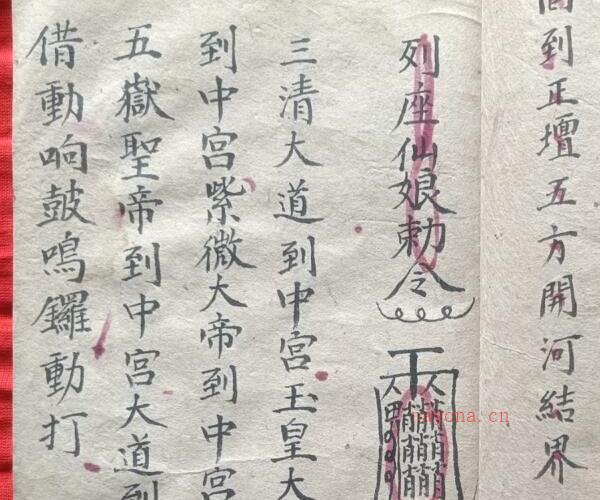 到正壇五方開河結界
列座仙娘勅令
三清大道到中宮玉皇大
到中宮紫微大帝到中宮
五嶽聖帝到中宮大道到
借動响鼓鳴鑼動打